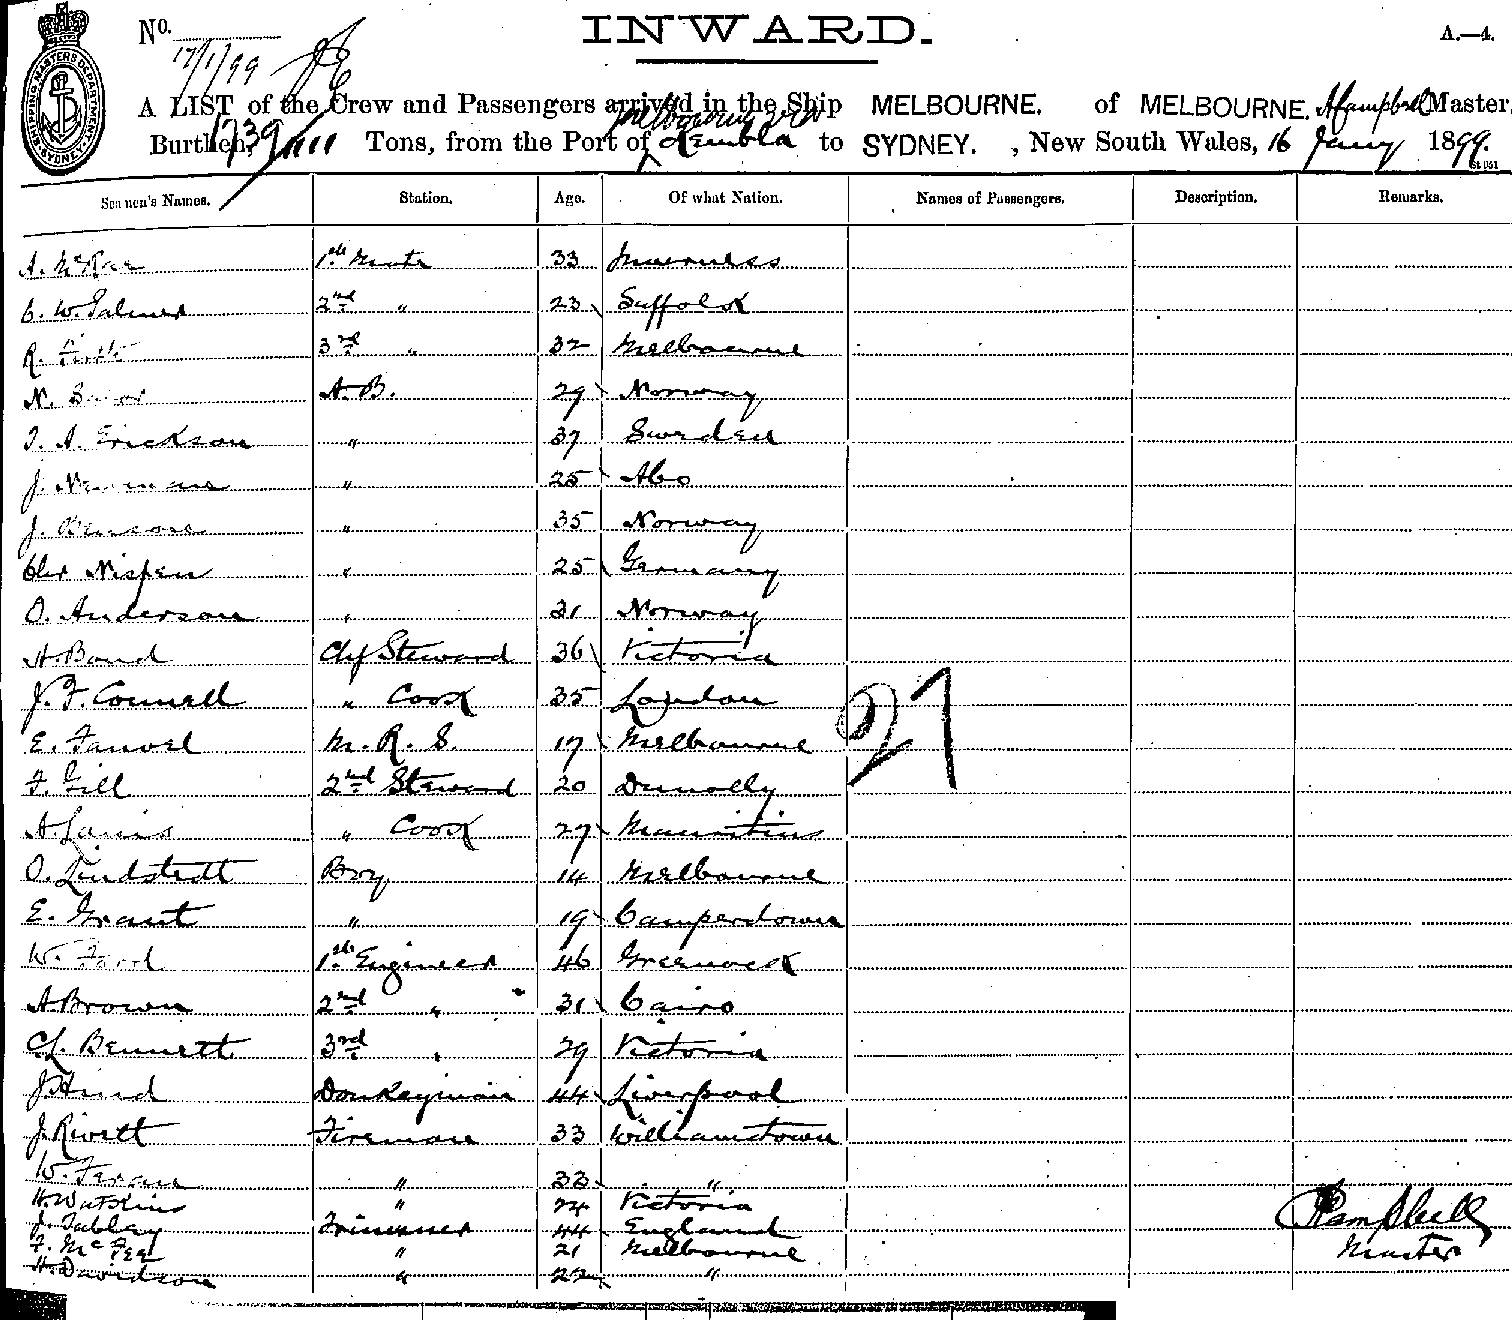 No. INWARD. A.—4.
17/1/99
SHIPPING MASTERS DEPARTMENT SYDNEY
A LIST of the Crew and Passengers arrived in the Ship MELBOURNE. of MELBOURNE, A Campbell Master,
Burthen, 1739 Tons, from the Port of Melbourne via Kembla to SYDNEY. , New South Wales, 16 Jany 1899.
Seamen's Names. Station. Age. Of what Nation. Names of Passengers. Description. Remarks.
A. McRae 1st Mate 33 Inverness
C. W. Palmer 2nd " 23 Suffolk
R. 3rd " 32 Melbourne
N. A.B. 29 Norway
J. A. Erickson " 37 Sweden
J. Newman " 25 Abo
J. " 35 Norway
Chr Nispen " 25 Germany
O. Anderson " 31 Norway
A. Bond Chf Steward 36 Victoria
J. F. Connell " Cook 35 London
E. M. R. S. 17 Melbourne
F. Gill 2nd Steward 20 Dunolly
A. " Cook 27 Mauritius
21
O. Lindstedt Boy 14 Melbourne
E. Grant " 19 Camperdown
W. Ford 1st Engineer 46 Greenock
A Brown 2nd " 31 Cairo
Ch. Bennett 3rd " 29 Victoria
J. Hind Donkeyman 44 Liverpool
J. Rivett Fireman 33 Williamstown
W. " 33 "
H. Watkins " 24 Victoria
J. Tablay Trimmer 44 England
F. McFee " 21 Melbourne
H. Davidson " 22 "
A Campbell
Master